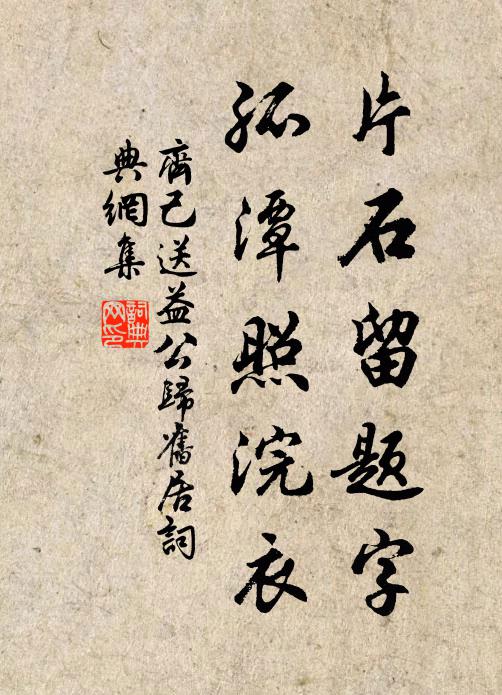 片石留题字
孤潭照浣衣
齊己送益公歸舊居詞
典網集
詞典
网印